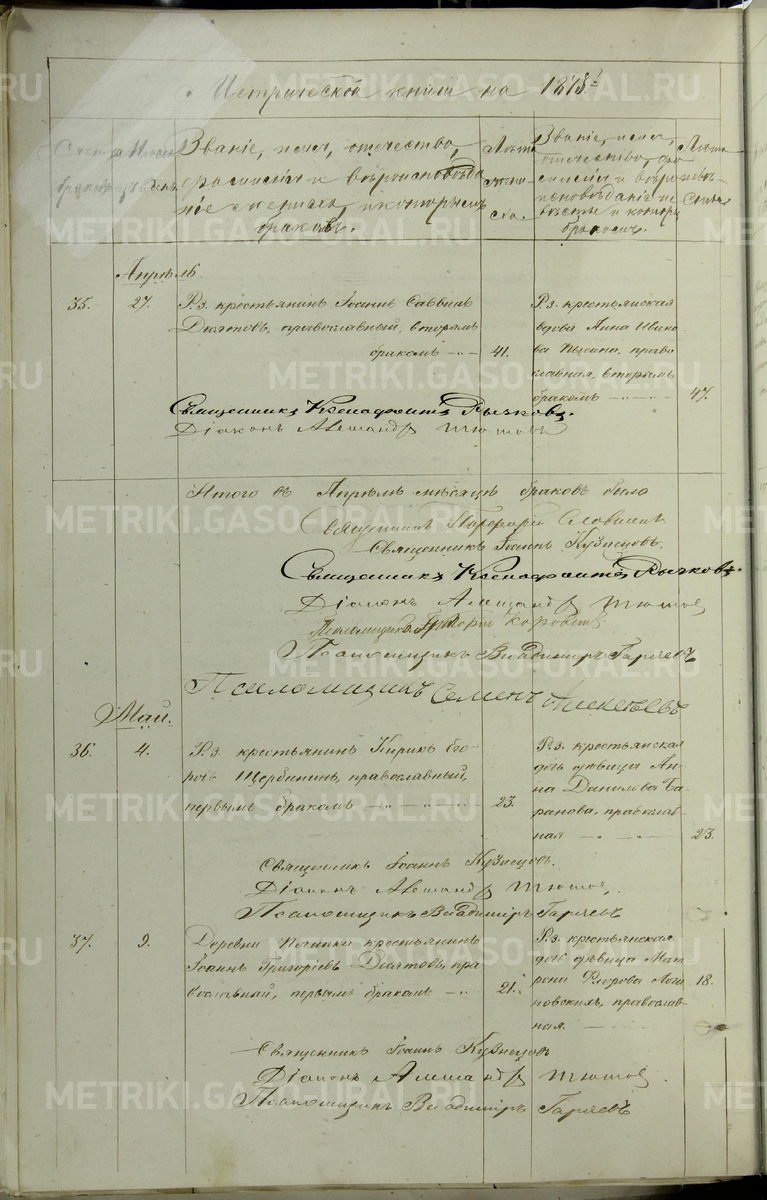 Метрической книги на 1878.г
Счетъ браковъ
Мѣсяцъ и день
Званіе, имя, отчество,
фамилія и вѣроисповѣда
ніе жениха, и которымъ
бракомъ.
Лѣта
жени
ха.
Званіе, имя,
отчество, фа
милія и вѣро
исповѣданіе не
вѣсты и которы
бракомъ.
Лѣта
невѣ
сты
Апрѣль
35. 27. Р. з. крестьянинъ Іоаннъ Саввинъ
православный, вторымъ
бракомъ 41.
Р. з. крестьянская
вдова Анна Ивано
ва право
славная, вторымъ
бракомъ 47.
Священникъ Ксенофонтъ Рычковъ.
Діаконъ Александръ Тюшовъ
Итого въ Апрѣлѣ мѣсяцѣ браковъ было
Священникъ Порфирій Словцовъ
Священникъ Іоаннъ Кузнецовъ.
Священникъ Ксенофонтъ Рычковъ.
Діаконъ Александръ Тюшовъ
Псаломщикъ Григорій Коровинъ
Псаломщикъ Владиміръ Гаряевъ
Псаломщикъ Семенъ Алексѣевъ
Май.
36. 4. Р. з. крестьянинъ Кирикъ Его
ровъ Щербининъ, православный,
первымъ бракомъ 23.
Р. з. крестьянская
дочь дѣвица Ан
на Данилова Ба
ранова, православ
ная 23.
Священникъ Іоаннъ Кузнецовъ.
Діаконъ Александръ Тюшов.
Псаломщикъ Владиміръ Гаряевъ
37. 9. Деревни крестьянинъ
Іоаннъ Григоріевъ пра
вославный, первымъ бракомъ 21.
Р. з. крестьянская
дочь дѣвица Мат
рона Логи
новскихъ, православ
ная. 18.
Священникъ Іоаннъ Кузнецовъ
Діаконъ Александръ Тюшов.
Псаломщикъ Владиміръ Гаряевъ
METRIKI.GASO-URAL.RU